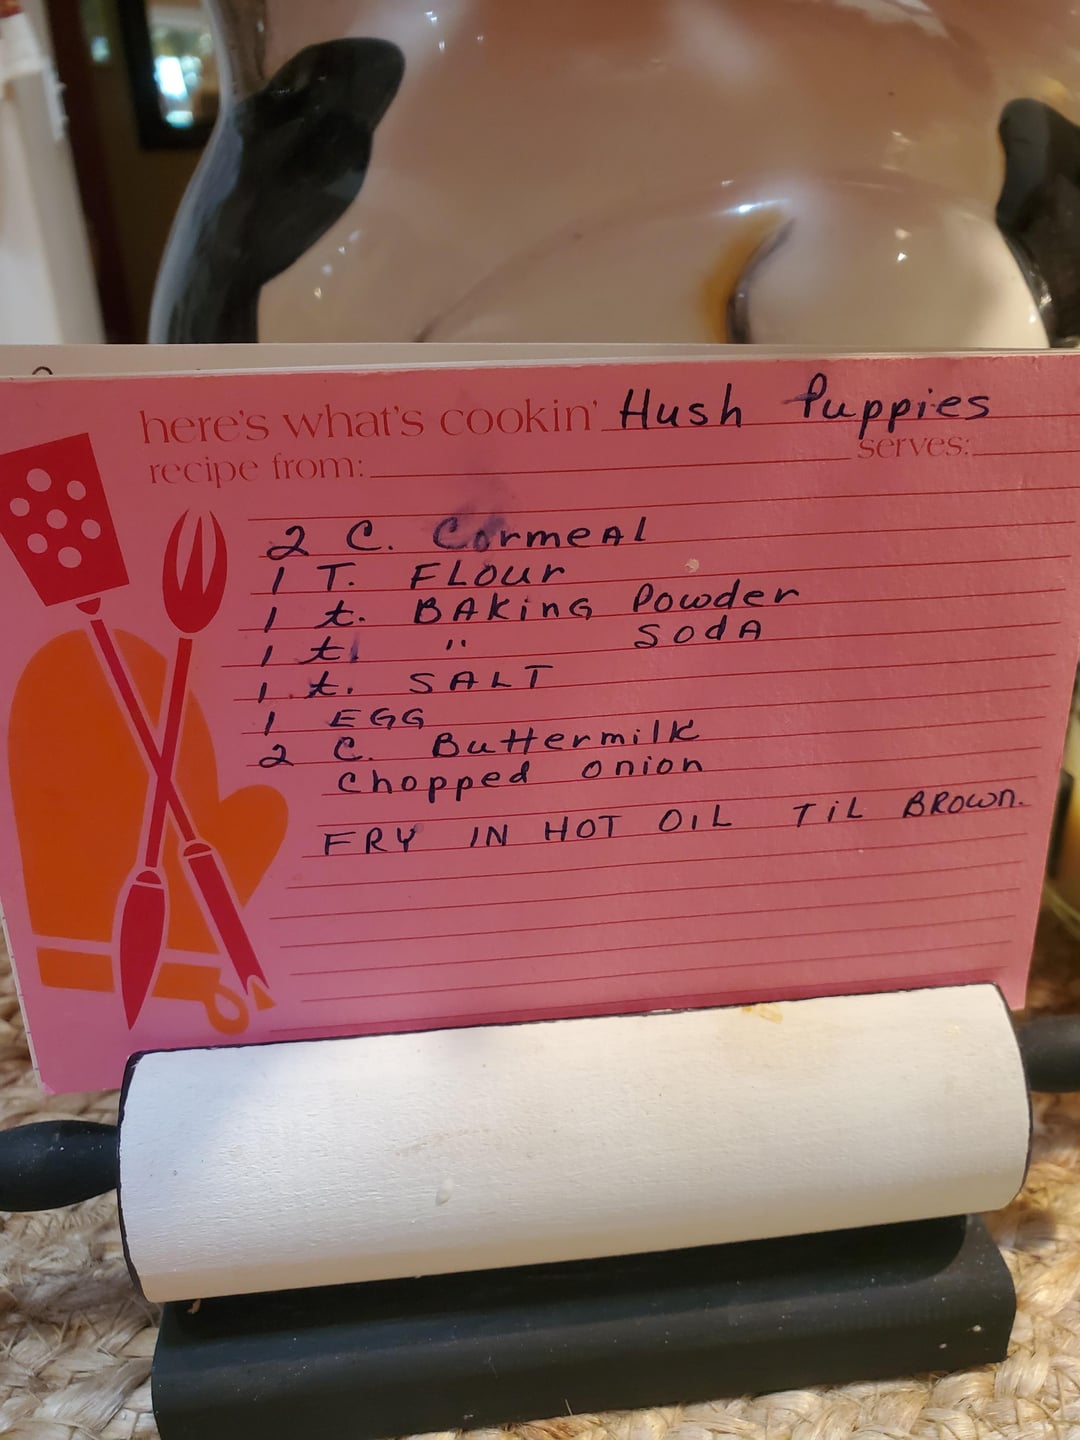 here's what's cookin' Hush Puppies
recipe from: serves:
2 C. Cormeal
1 T. Flour
1 t. Baking Powder
1 t. " Soda
1 t. Salt
1 Egg
2 C. Buttermilk
Chopped onion
Fry in hot oil til brown.